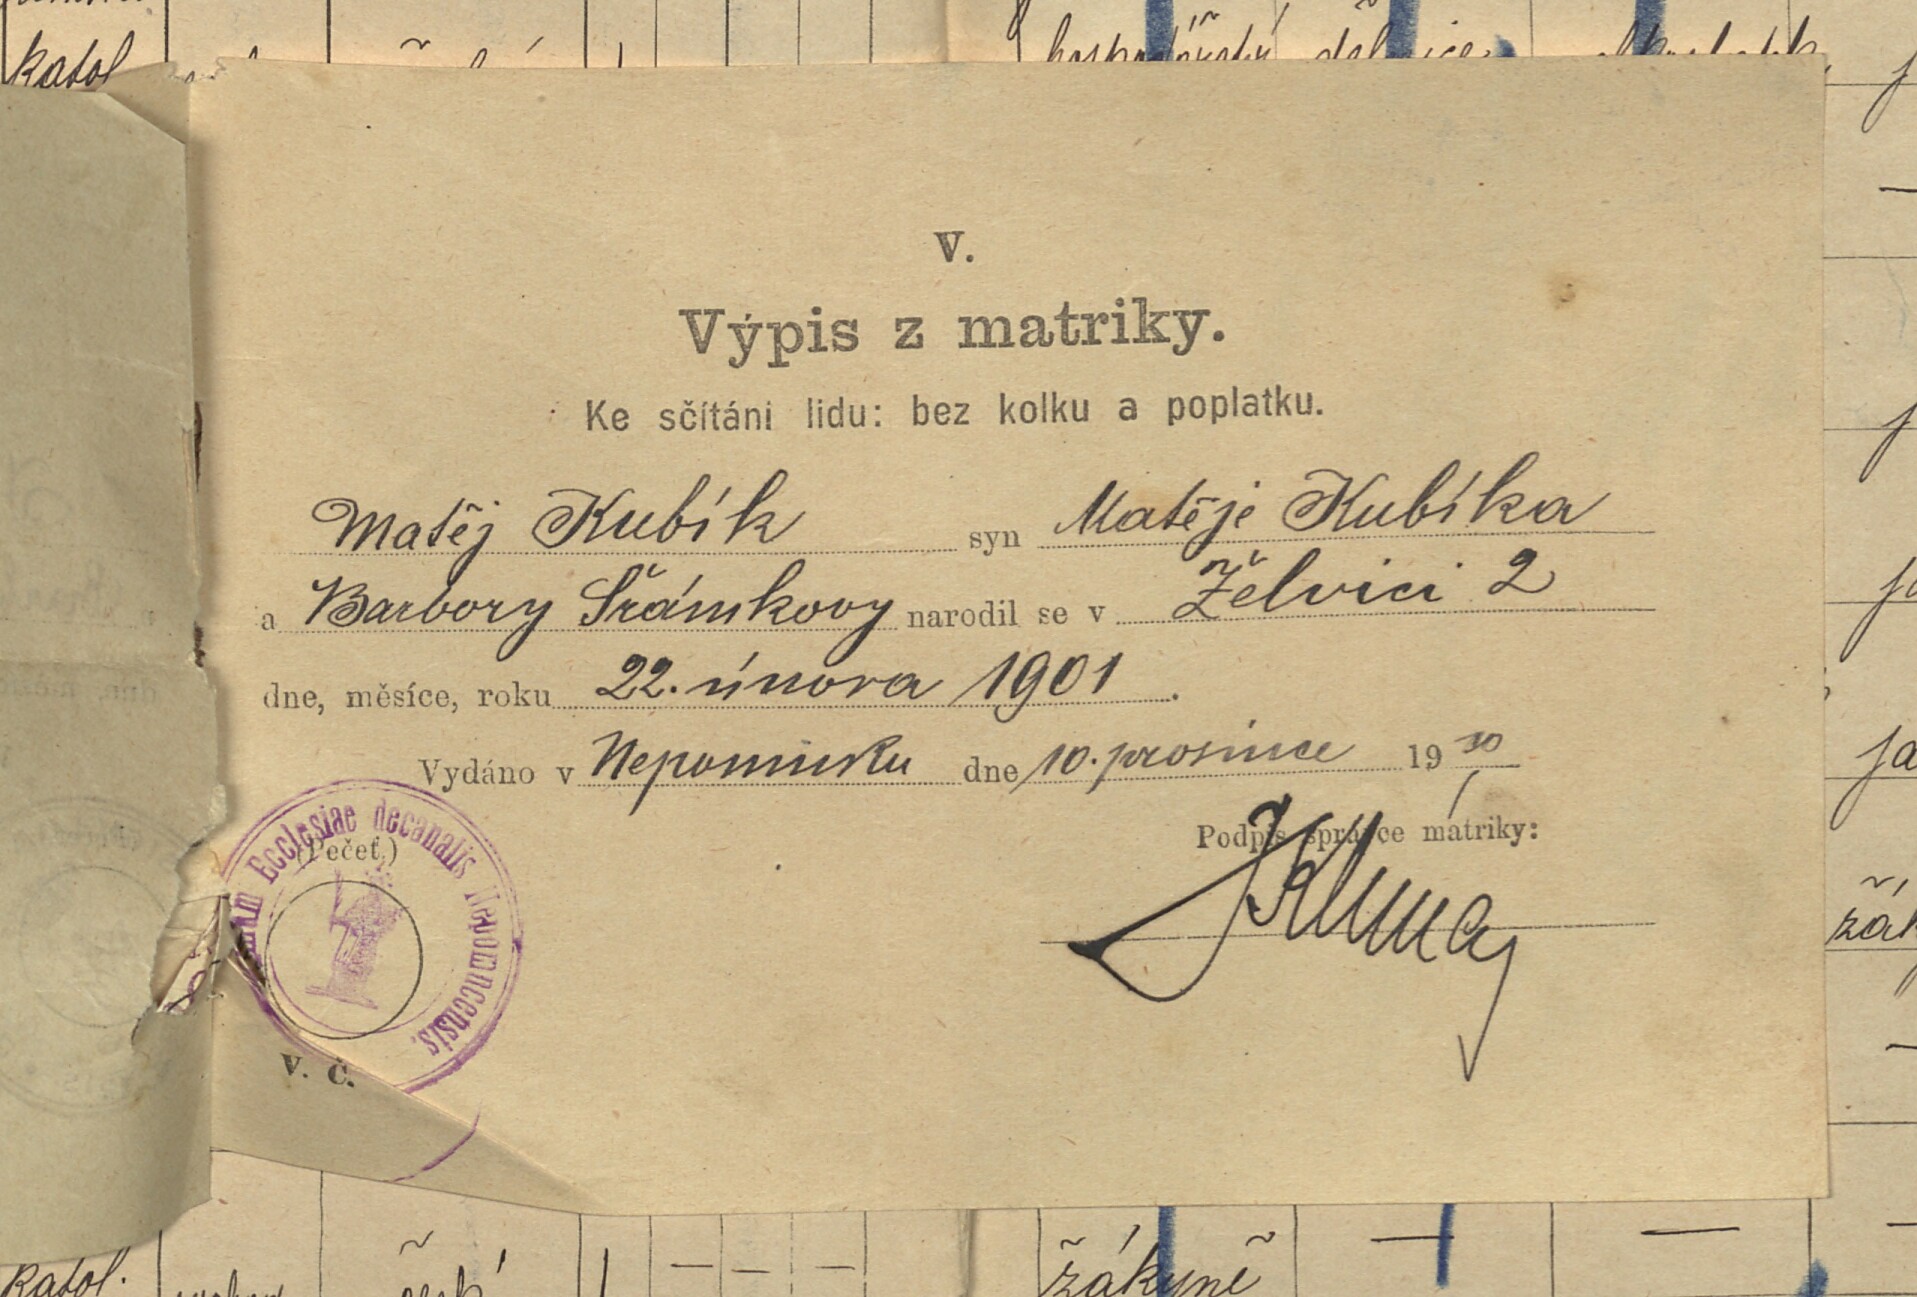 katol
hospodářský
V.
Výpis z matriky.
Ke sčítání lidu: bez kolku a poplatku.
Matěj Kubík syn Matěje Kubíka
a Barbory Šrámkovy narodil se v Želvici 2
dne, měsíce, roku 22. února 1901.
Vydáno v Nepomuku dne 10. prosince 1930
Podpis správce matriky:
(Pečeť.)
Ecclesiae decanalis Nepomucensis.
V. Č.
katol. česká 1 — — — žákyně — —